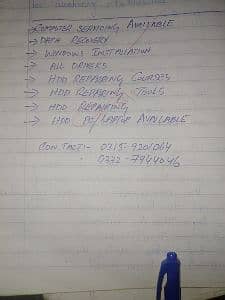 → COMPUTER SERVICING AVAILABLE
→ DATA RECOVERY
→ WINDOWS INSTALLATION
→ ALL DRIVERS
→ HDD REPAIRING COURSES
→ HDD REPAIRING TOOLS
→ HDD REPAIRING
→ USED PC/LAPTOP AVAILABLE
CONTACT:- 0315-9201064
0332-7944046